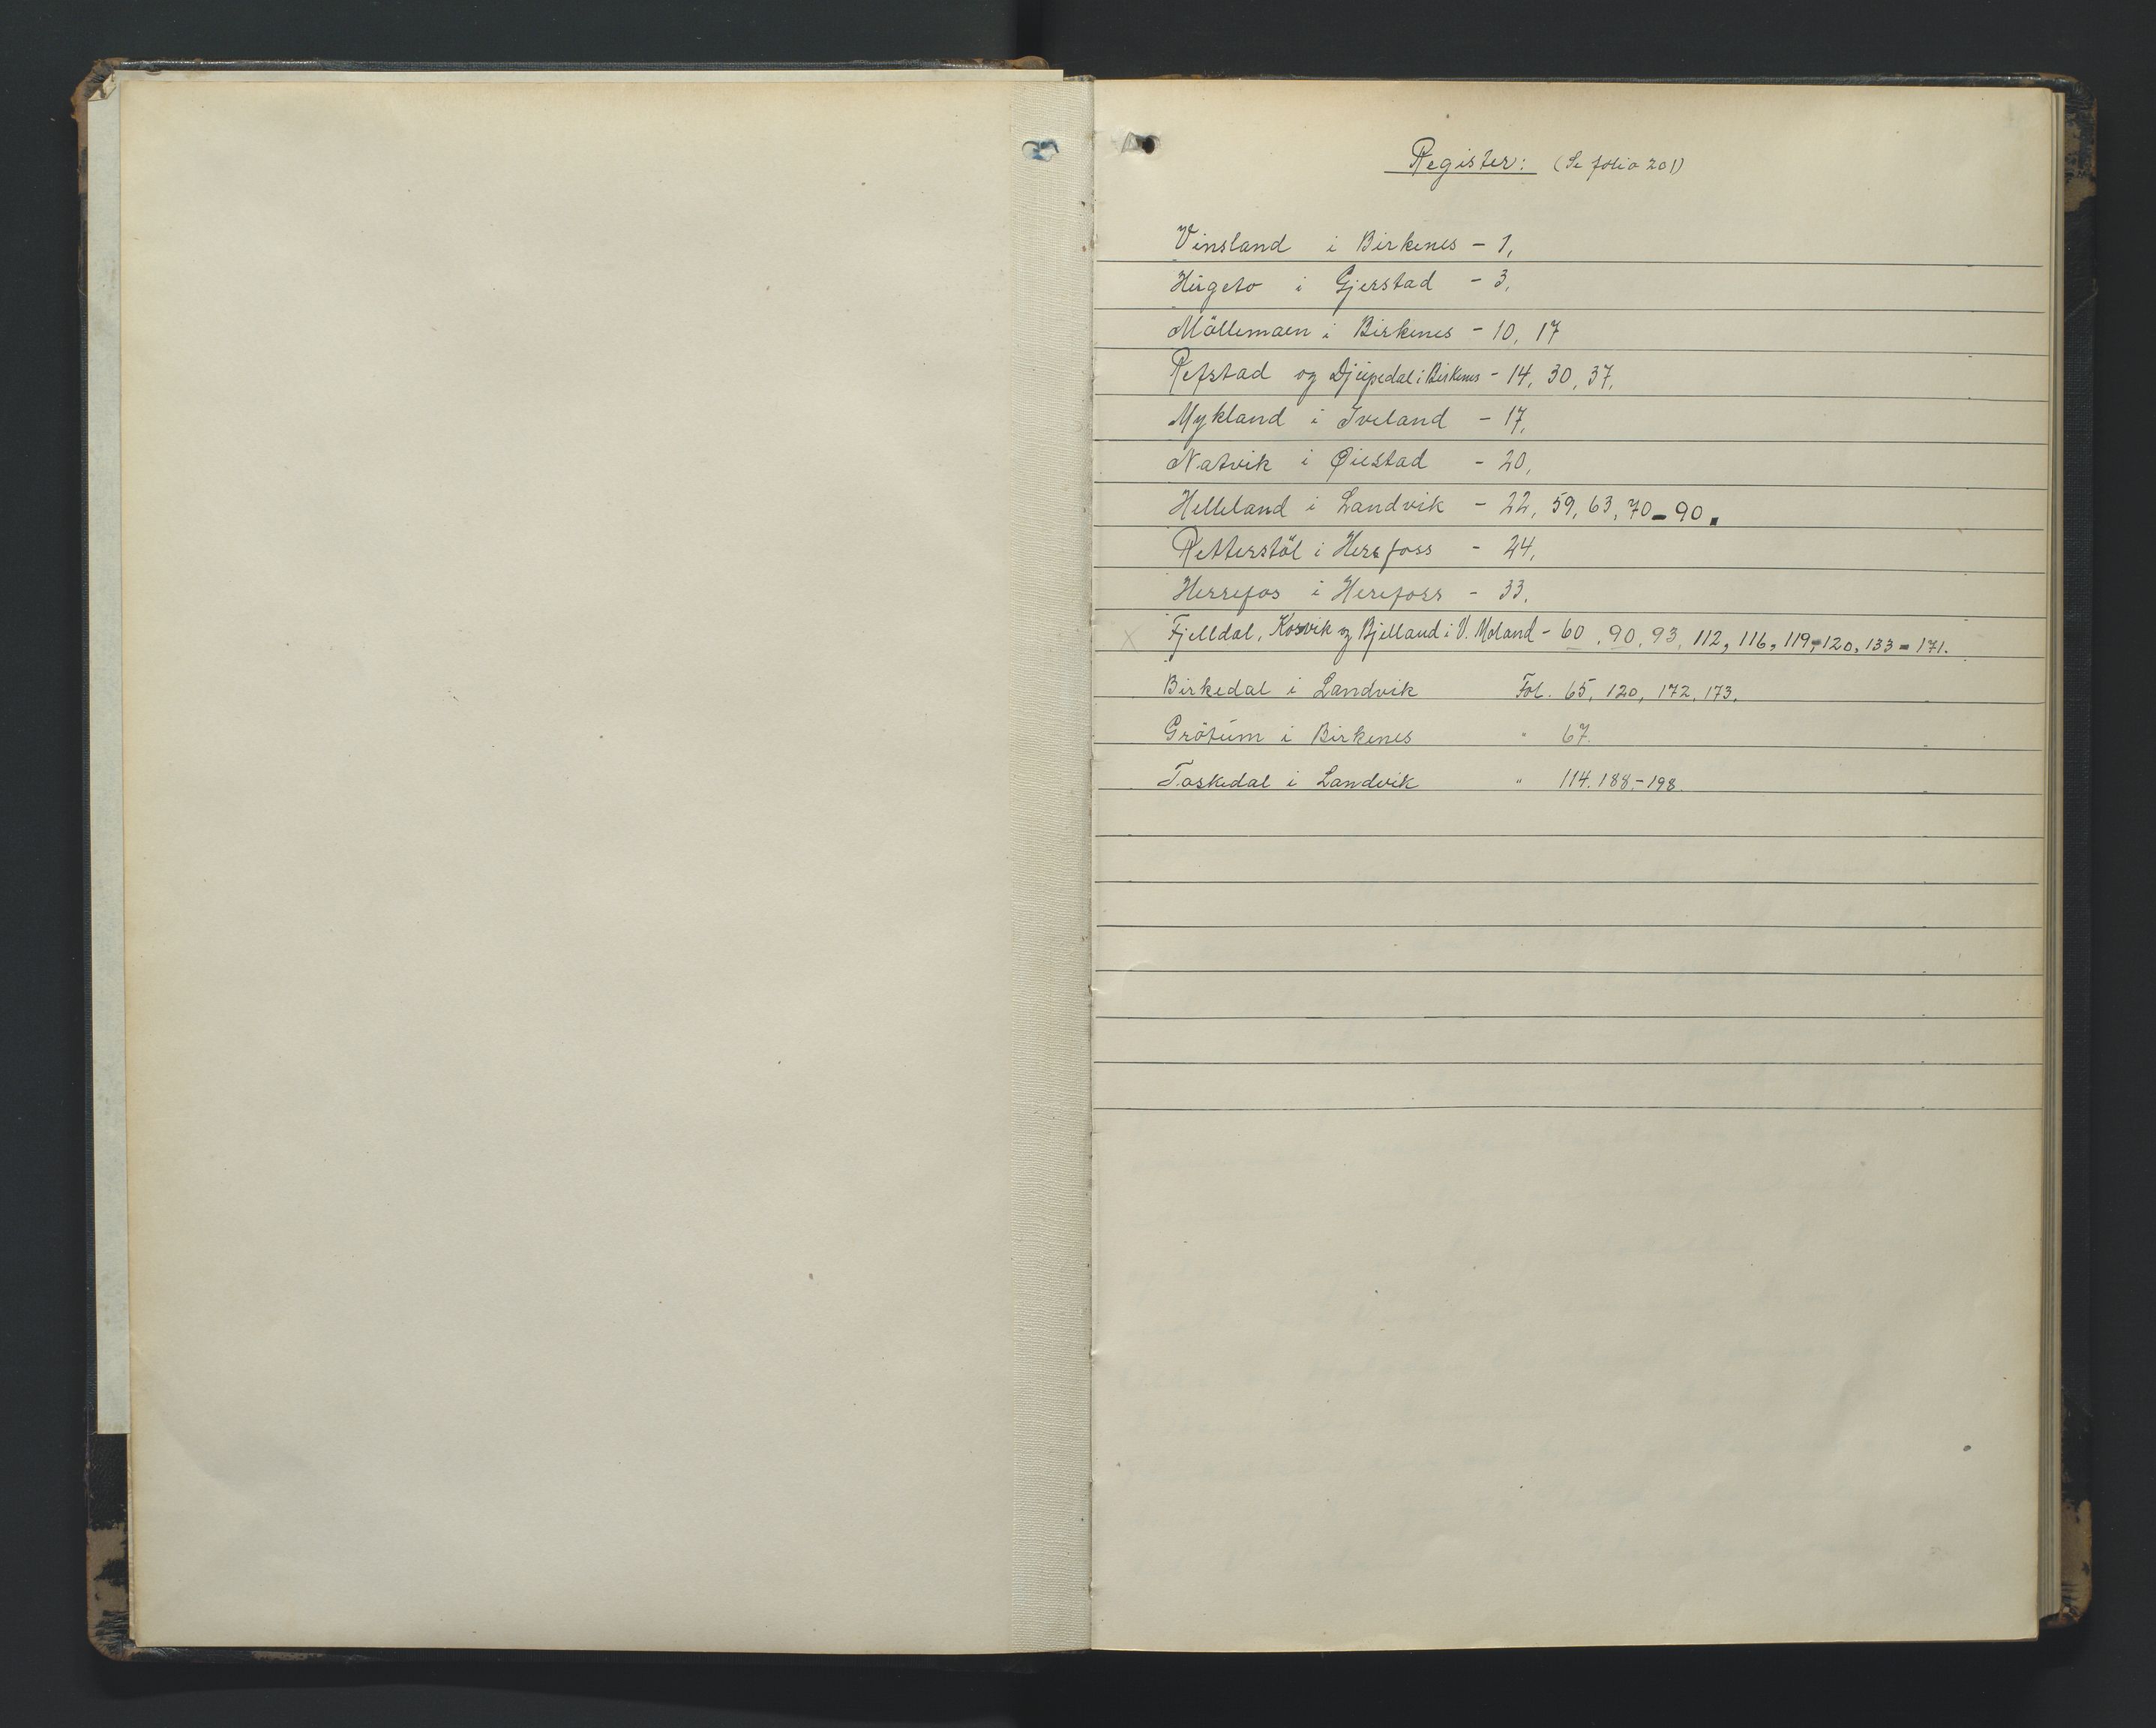 Register: (Se folio 201)
Vinsland i Birkenes - 1,
Hugeto i Gjerstad - 3,
Möllemoen i Birkenes - 10, 17
Refstad og Djupedal i Birkenes - 14, 30, 37,
Mykland i Iveland - 17,
Natvik i Øiestad - 20,
Helleland i Landvik - 22, 59, 63, 70 - 90.
Retterstöl i Herefoss - 24,
Herrefos i Herefoss - 33,
X Fjelldal, Kosvik og Bjelland i V. Moland - 60, 90, 93, 112, 116, 119, 120, 133 - 171.
Birkedal i Landvik Fol. 65, 120, 172, 173,
Gröšum i Birkenes " 67.
Toskedal i Landvik " 114. 188. - 198.